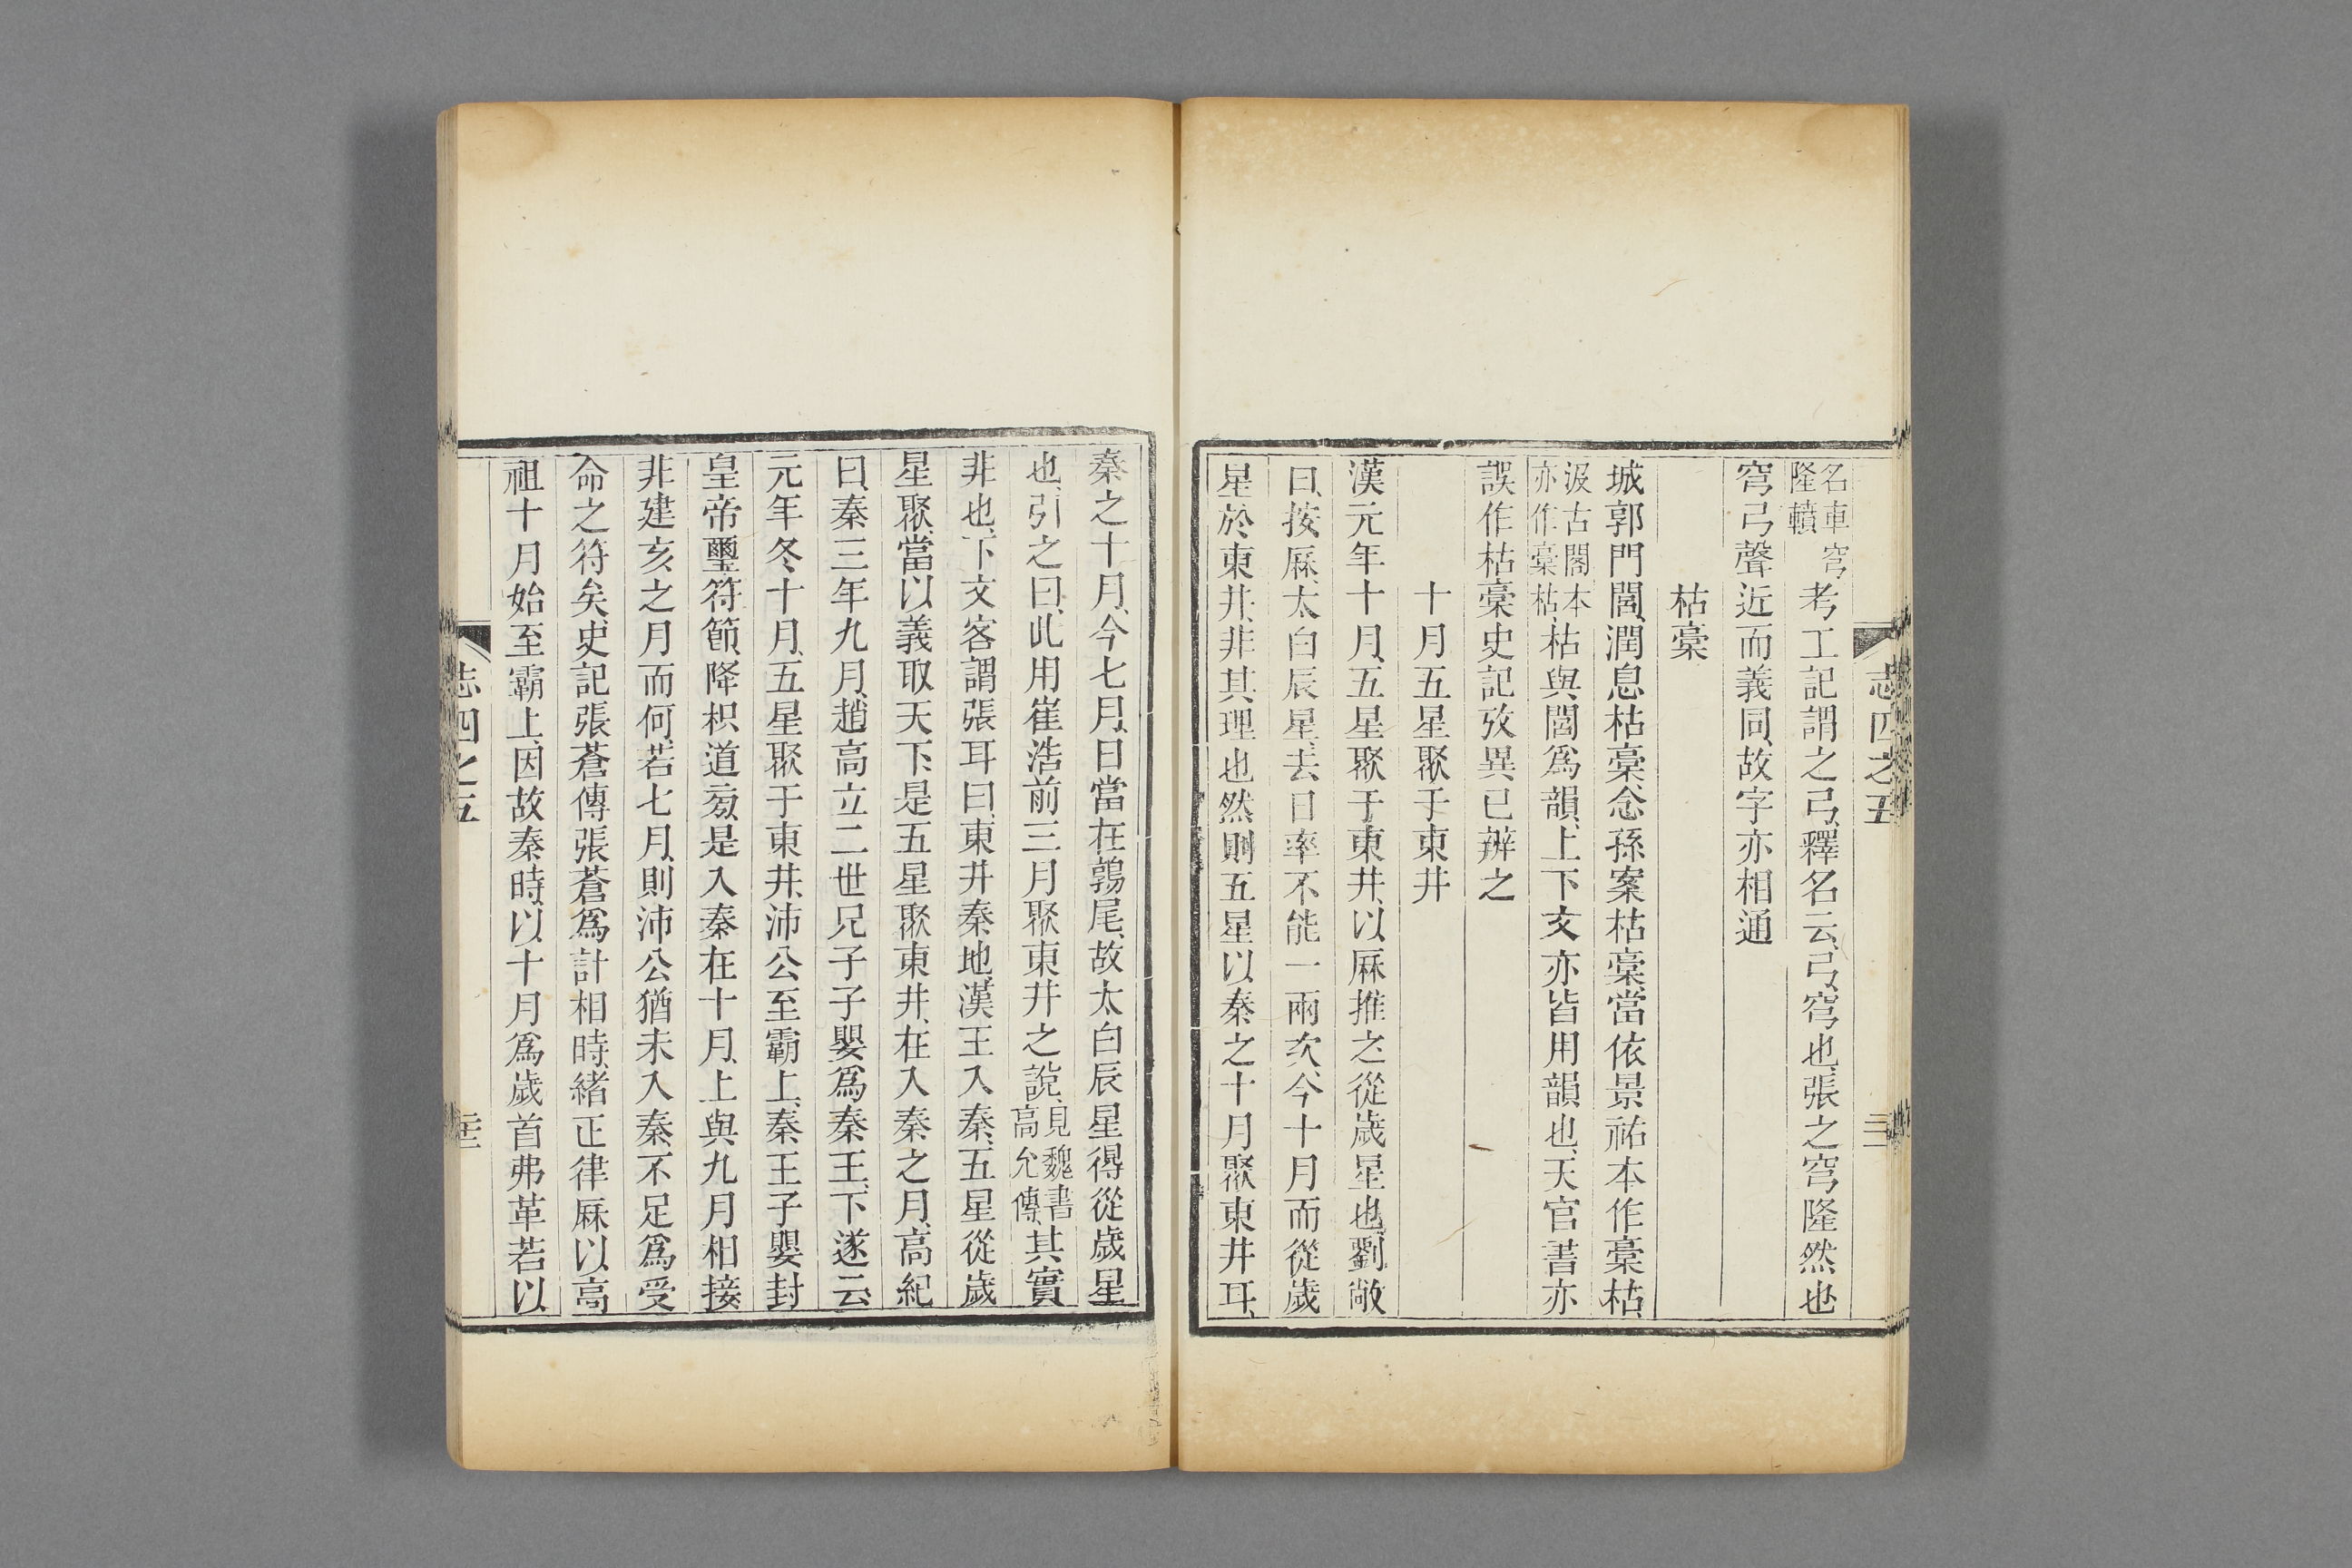 志四之五
名車穹
隆轒
考工記謂之弓、釋名云、弓、穹也、張之穹隆然也
穹弓聲近而義同、故字亦相通
枯稾
城郭門閭、潤息枯稾、念孫案枯稾當依景祐本作稾枯、
汲古閣本
亦作稾枯、
枯與閭爲韻、上下文亦皆用韻也、天官書亦
誤作枯稾史記攷異已辨之
十月五星聚于東井
漢元年十月、五星聚于東井、以厤推之、從歲星也、劉敞
曰、按厤、太白辰星、去日率不能一兩次、今十月而從歲
星於東井、非其理也然則五星以秦之十月、聚東井耳、
秦之十月、今七月、日當在鶉尾、故太白辰星得從歲星
也、引之曰、此用崔浩前三月聚東井之說、
見魏書
高允傳、
其實
非也、下文客謂張耳曰、東井秦地、漢王入秦、五星從歲
星聚、當以義取天下、是五星聚東井、在入秦之月、高紀
曰、秦三年九月、趙高立二世兄子子嬰爲秦王、下遂云
元年冬十月、五星聚于東井、沛公至霸上、秦王子嬰封
皇帝璽符節、降枳道㫄、是入秦在十月、上與九月相接
非建亥之月而何、若七月、則沛公猶未入秦、不足爲受
命之符矣、史記張蒼傳張蒼爲計相時、緒正律厤以高
祖十月始至霸上、因故秦時、以十月爲歲首弗革若以
志四之五